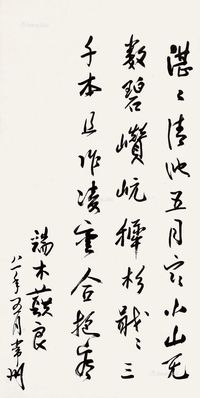 湛〻清池五月寒小山无
数碧巑岏稚杉戢〻三
千本且作凌雲合抱看
端木蕻良
八一年五月常州